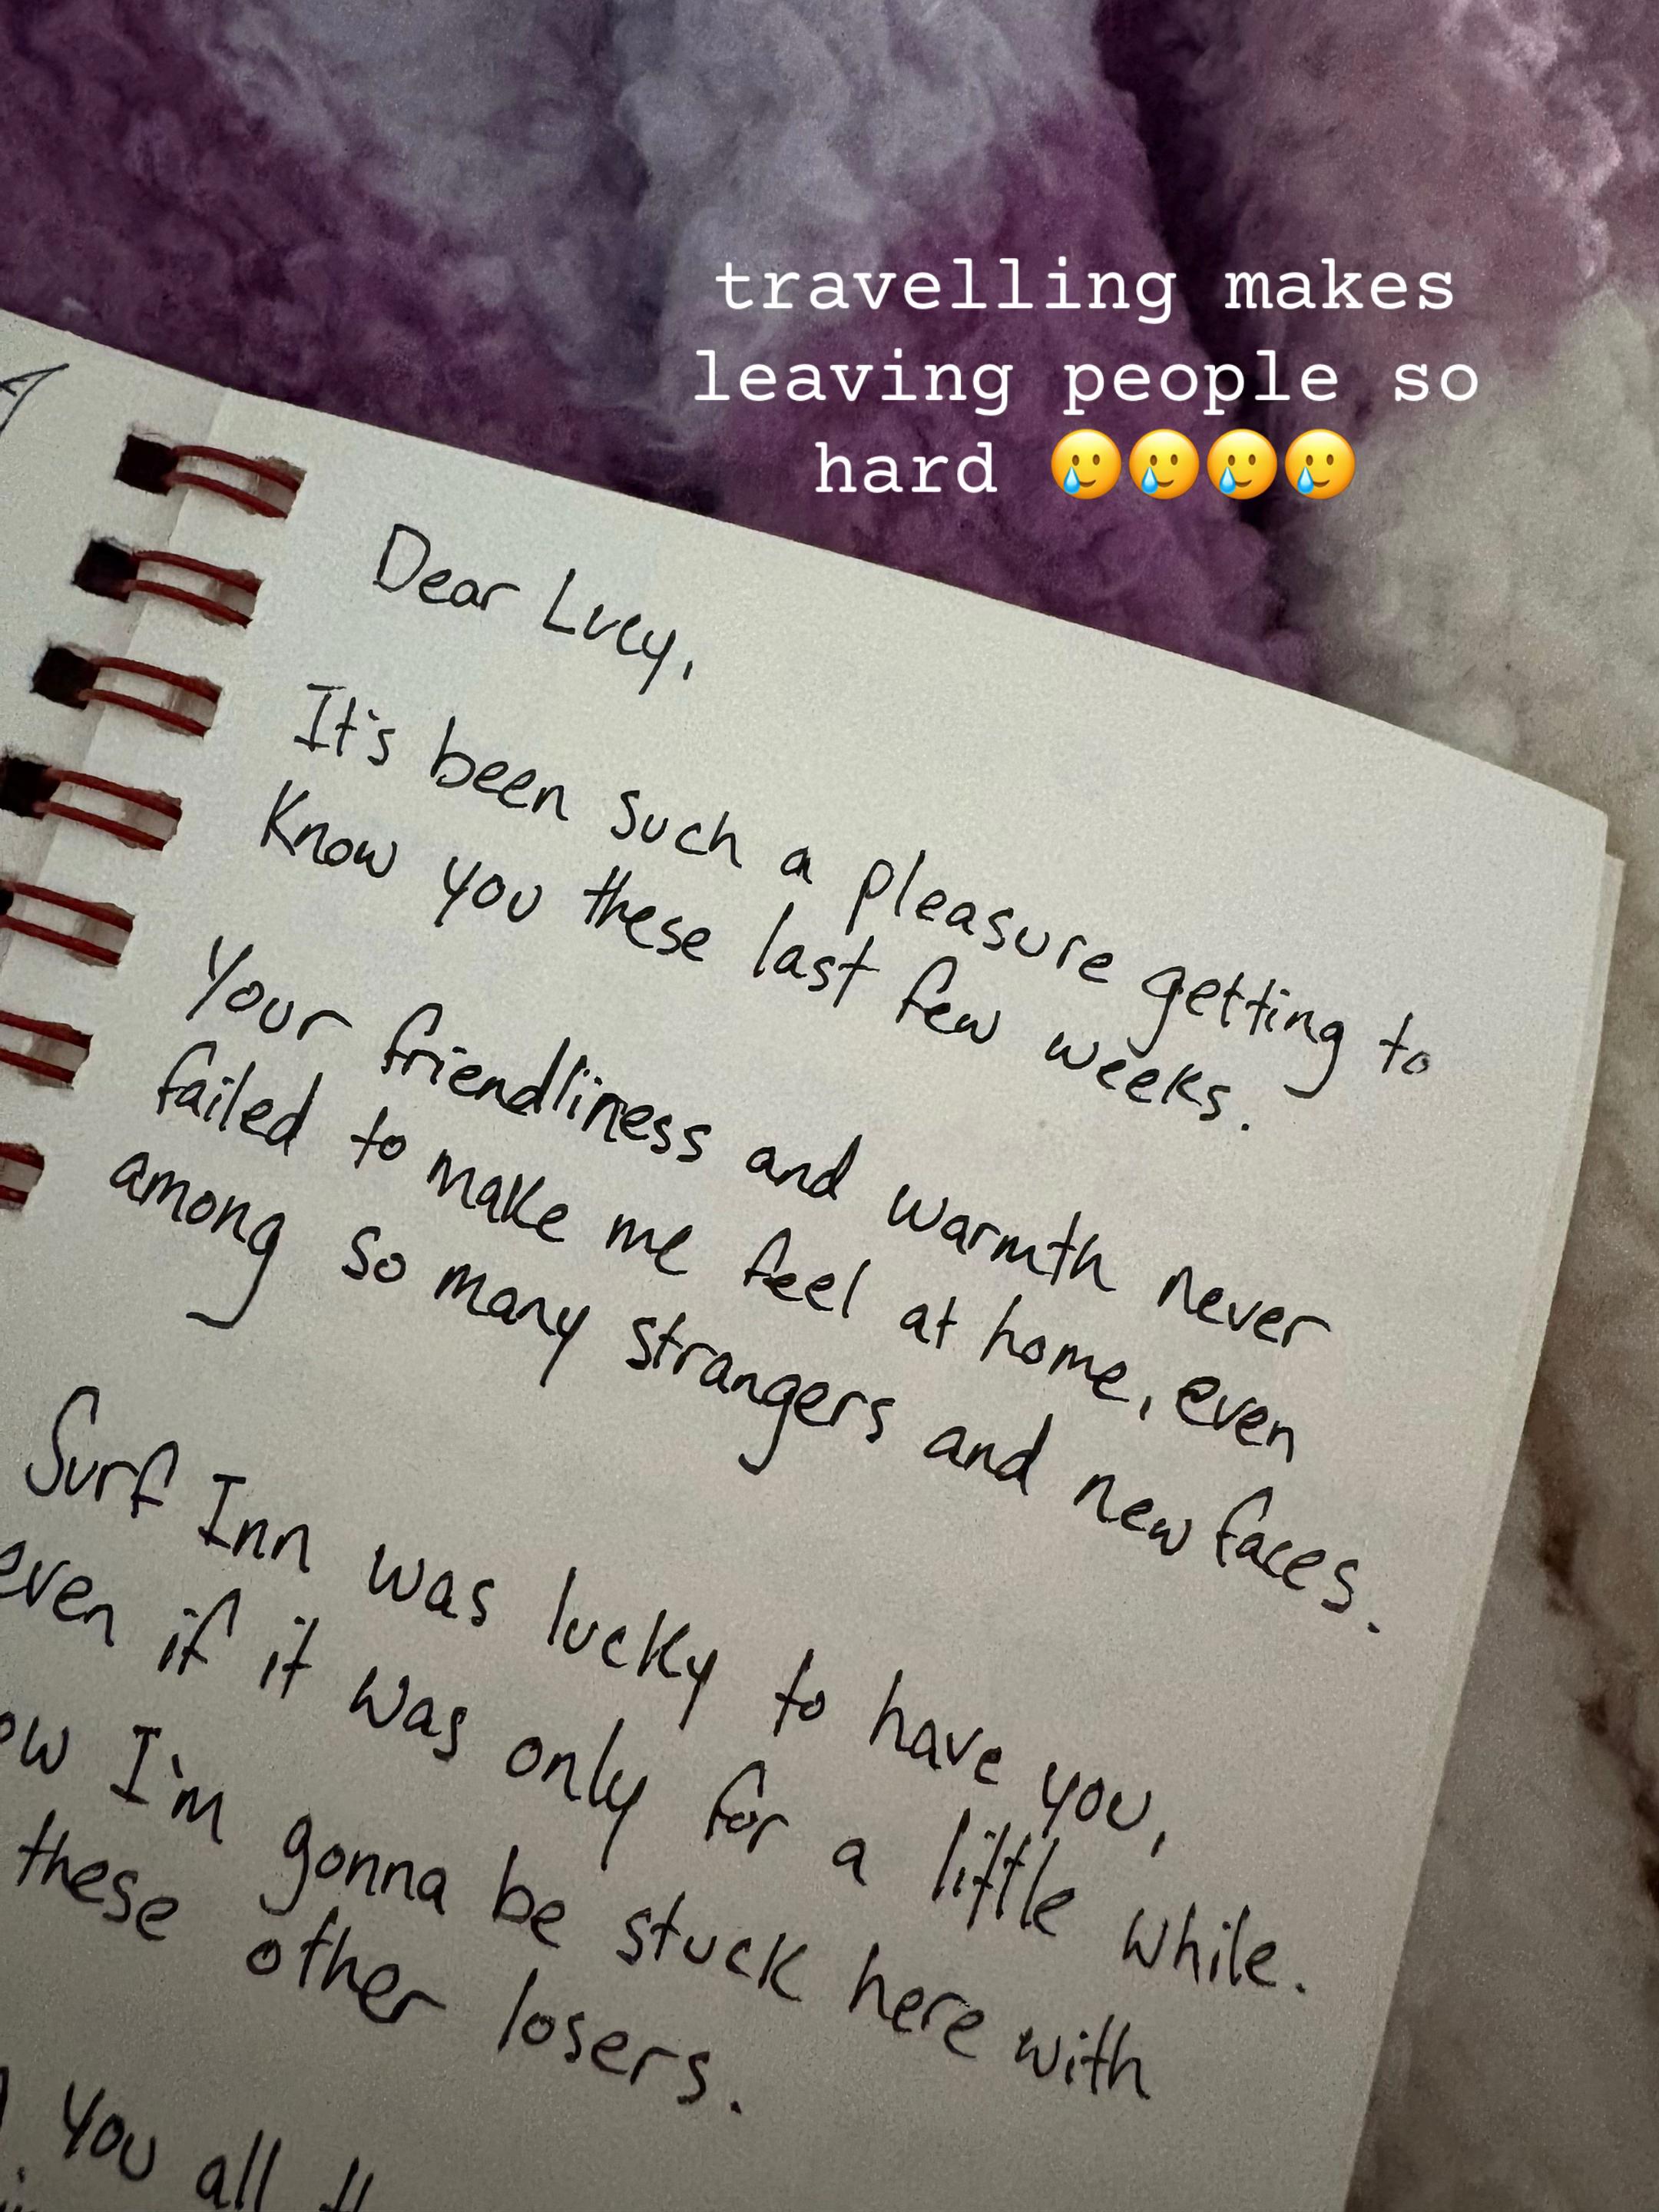 travelling makes
leaving people so
hard 🥲🥲🥲🥲
Dear Lucy,
It's been such a pleasure getting to
Know you these last few weeks.
Your friendliness and warmth never
failed to make me feel at home, even
among so many strangers and new faces.
Surf Inn was lucky to have you,
even if it was only for a little while.
I'm gonna be stuck here with
these other losers.
you all